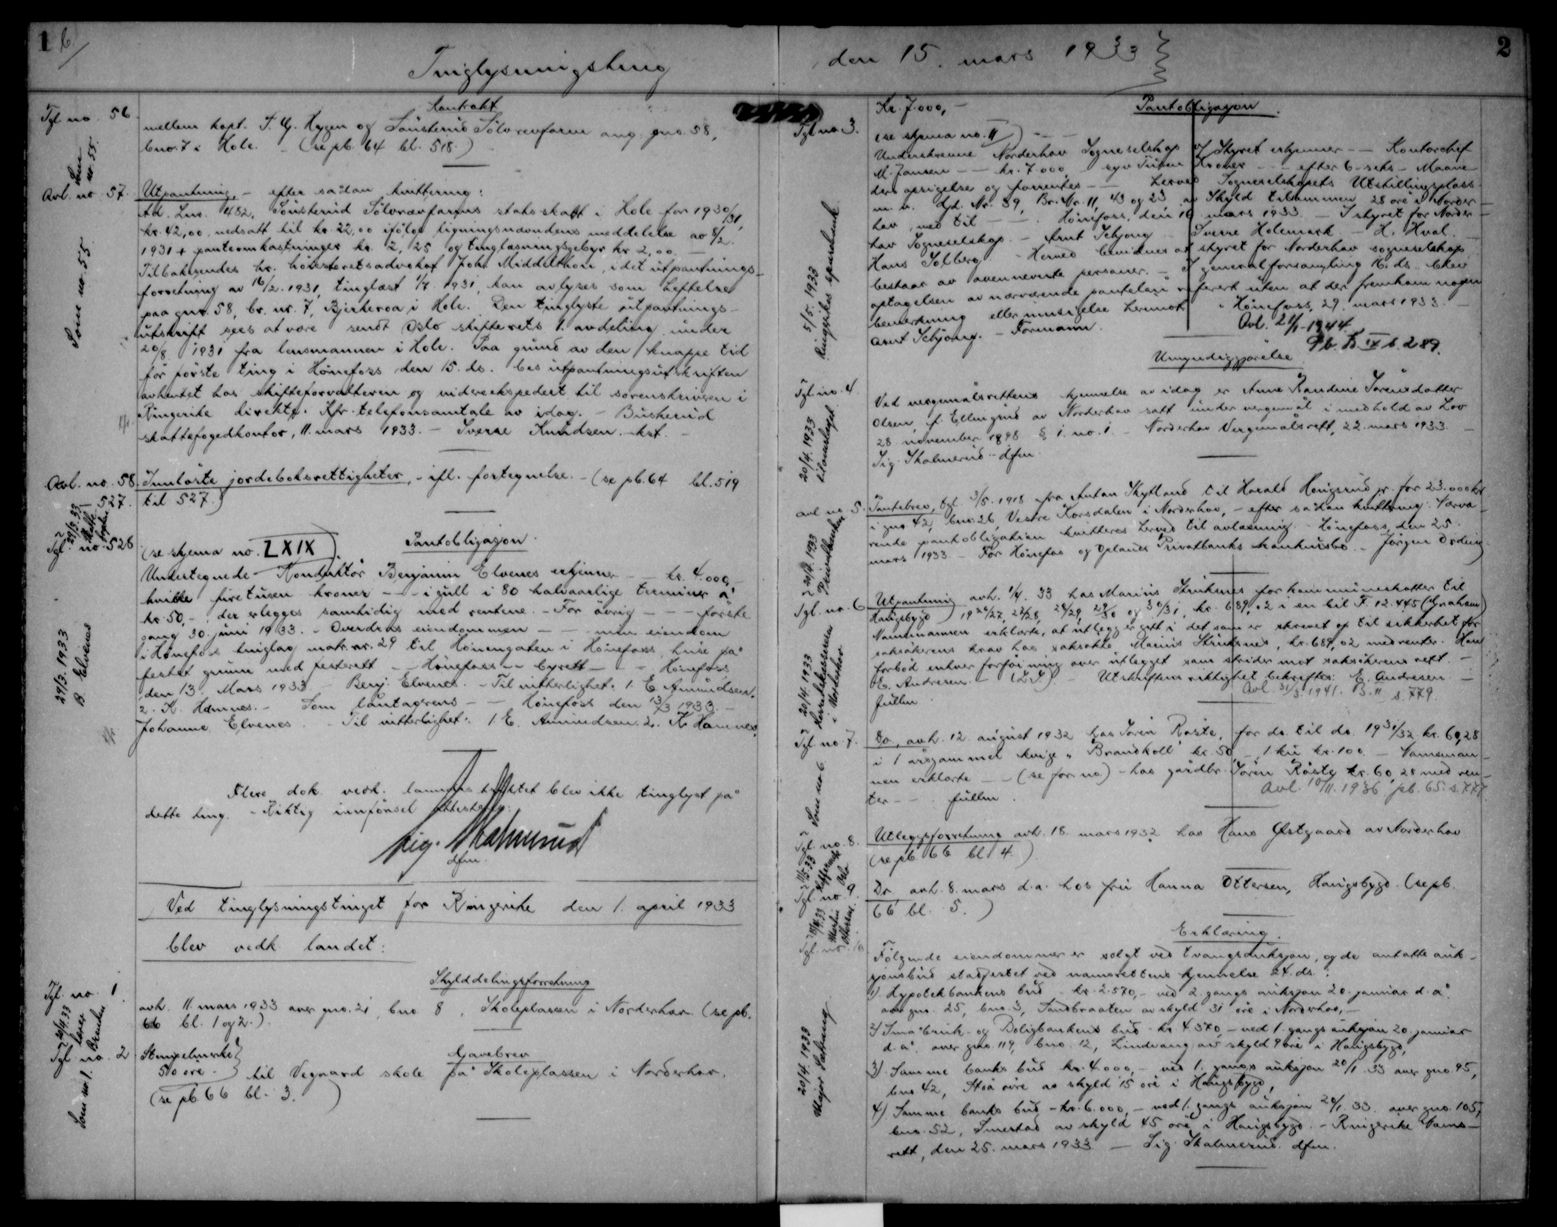 1
6/
Tinglysningsting
Tgl no. 56
Som no. 55.
Kontrakt
mellem kapt. F. G. Hygen og Sønsterud Sølvrevfarm ang. gno. 58,
bno. 7 i Hole. - (se pb. 64 bl. 518.)
Avl. no. 57.
Som no. 55
Utpantning, - efter sådan kvittering:
Ad. Lnr. 482, Sønsterud Sølvrævfarms statsskatt i Hole for 1930/31,
kr. 42,00, nedsatt til kr. 22,00 ifølge ligningsnævndens meddelelse av 8/2.
1931 + panteomkostninger kr. 2,25 og tinglæsningsgebyr kr. 2,00. -
Tilbakesendes hr. høiesteretsadvokat Joh. Middelthon, idet utpantnings-
forretning av 16/2. 1931, tinglæst 1/4 1931, kan avlyses som heftelse
paa gnr. 58, br. nr. 7, Bjerkeroa i Hole. Den tinglyste utpantnings-
utskrift sees at være sendt Oslo skifterets 1. avdeling under
20/8 1931 fra lensmannen i Hole. Paa grund av den knappe tid
før første ting i Hønefoss den 15. ds. bes utpantningsutskriften
avhentet hos skifteforvalteren og viderekspedert til sorenskriveren i
Ringerike direkte. Kfr. telefonsamtale av idag. - Buskerud
skattefogedkontor, 11. mars 1933. - Sverre Knudsen. kst. -
Avl. no. 58
- 527.
Innløste jordeboksrettigheter, - ifl. fortegnelse. - (se pb. 64 bl. 519
til 527.)
Tgl no. 528
29/3. 1933
B. Elvenes
(se skjema no. LXIX).
Pantobligasjon.
Undertegnede Konduktør Benjamin Elvenes erkjenner - - kr. 4.000,-
hvilke firetusen kroner - - i gull i 80 halvaarlige terminer à
kr. 50,- der erlegges samtidig med rentene. - For øvrig - - - første
gang 30. juni 1933. - Overdras eiendommen - - - min eiendom
i Hønefoss tinglag matr. nr. 29 til Hönengaten i Hönefoss, huse på
festet grunn med festerett - Hönefoss - byrett - - Hönefoss
den 13. Mars 1933 - Benj. Elvenes. - Til vitterlighet: 1. E. Amundsen.
2. K. Hamnes. - Som låntagerens - - Hönefoss den 13/3 1933. -
Johanne Elvenes - Til vitterlighet: 1 E. Amundsen. 2. K. Hamnes.
Flere dok. vedk. landdistriktet blev ikke tinglyst på
dette ting. - Riktig innførsel attesteres.
Sig. Skalmerud
dfm.
Ved tinglysningstinget for Ringerike den 1. april 1933
blev vedk. landet:
Tgl. no. 1.
Skylddelingsforretning
avh. 11. mars 1933 over gno. 21, bno 8, Skoleplassen i Norderhov (se pb.
66 bl. 1 og 2.).
Tgl no. 2
Som no 1.
Stempelmerke
50 øre.
Gavebrev
til Vegaard skole på Skoleplassen i Norderhov.
(se pb 66 bl. 3.)
den 15. mars 1933
2
Tgl no 3.
5/5. 1933
Ringerikes sparebank
Kr. 7000,-
Pantobligasjon.
(se skjema no. II) - -
Underskrevne Norderhov Sogneselskap v/ Styret erkjenner - - Kontorchef
M. Jansen - - kr. 7000, - syv Tusen Kroner - - efter 6-seks - Maane-
ders opsigelse og forrentes - - herved Sogneselskapets Utstillingsplass
m. v. Gd. Nr. 89, Br. Nr. 11, 43 og 23 av Skyld tilsammen 28 øre i Norder-
hov, med til - - Hönefoss, den 10 mars 1933. - I styret for Norder-
hov Sogneselskap. - Arnt Schjong - Sverre Holemark - H. Hval. -
Hans Solberg - Herved bevidnes at styret for Norderhov sogneselskap
bestaar av ovennevnte personer. - I generalforsamling 16 ds. blev
optagelsen av nærværende pantelaan referert uten at der fremkom nogen
bemerkning eller innsigelse hermot - Hønefoss, 29. mars 1933. -
Arnt Schjong. - Formann.
Avl. 21/1-1944
Pb. B IX b 289.
Tgl no. 4
20/4. 1933
Umyndiggjørelse
Ved vergemålsrettens kjennelse av idag er Anne Randine Sørensdatter
Olsen, f. Ellingsrud av Norderhov satt under vergemål i medhold av Lov
28. november 1898 § 1. no. 1. - Norderhov Vergemålsrett, 22. mars 1933. -
Sig. Skalmerud - dfm
avl no 5.
Pantebrev, tgl. 3/5. 1918 fra Anton Skytland til Harald Hougsrud jr. for 23.000 kr
i gno 42, bno. 26, Vestre Korsdalen i Norderhov, - efter sådan kvittering: Nærvæ-
rende pantobligation kvitteres herved til avlæsning. - Hönefoss, den 25.
mars 1933 - For Hönefos og Oplands Privatbanks konkursbo. - Jørgen Orden
Tgl. no. 6
20/4. 1933
Herredskassereren
i Norderhov
Utpantning avh. 1/4. 33 hos Marius Strøksnes for kommuneskatter til
Haugsbygd 1926/27, 27/28, 28/29, 29/30 og 30/31, kr. 689,02 i en bil F. 12.445 (Graham)
Namsmannen erklærte, at utlegg er gitt i det som er skrevet op til sikkerhet for
saksøkerens krav hos saksøkte, Marius Strøksnes, kr. 689,02 med renter. Han
forbød enhver forføining over utlegget som strider mot saksøkerens rett. -
E. Andresen. - (L.S.) - Utskriftens riktighet bekreftes: E. Andresen -
fullm.
Avl. 31/3 1941. B. 11 s. 779.
Tgl no 7.
Som no 6
Do, avh. 12. august 1932 hos Søren Røste, for do. til do. 1931/32 kr. 60,28
i 1 årsgammel kvige "Brandkoll" kr. 50 - 1 ku kr. 100 - Namsman-
nen erklærte - - (se for. no) - hos gårdbr. Søren Røste kr. 60,28 med ren-
ter - - fullm.
Avl. 10/11. 1936 pb. 65. s. 777.
Tgl. no. 8.
Utleggsforretning avh. 18. mars 1932 hos Hans Østgaard av Norderhov
(se pb 66 bl 4.)
Tgl. no. 9.
Do avh. 8. mars d.a. hos fru Hanna Ottersen, Haugsbygd. (se pb.
66 bl. 5.)
Tgl. no. 10
20/4. 1933
Major Solaug
Erklæring.
Følgende eiendommer er solgt ved tvangsauksjon, og de antatte auk-
sjonsbud stadfestet ved namsrettens kjennelse 24. ds.:
1) Hypotekbankens bud - kr. 2.570,- ved 2. gangs auksjon 20. januar d.å.
over gno. 25, bno. 3, Sandbraaten av skyld 31 øre i Norderhov, -
2) Småbruk- og Boligbankens bud - kr. 4.570,- ved 1. gangs auksjon 20. januar
d.å. over gno 119, bno. 12, Lindvang av skyld 9 øre i Haugsbygd,
3) Samme banks bud kr. 4.000,- ved 1. gangs auksjon 20/1. 33 over gno. 95,
bno 42, av skyld 15 øre i Haugsbygd,
4) Samme banks bud - kr. 6.000,- ved 1. gangs auksjon 24/1. 33. over gno. 105,
bno. 52, Smestad av skyld 45 øre i Haugsbygd. - Ringerike Nams-
rett, den 25. mars 1933 - Sig. Skalmerud. dfm.